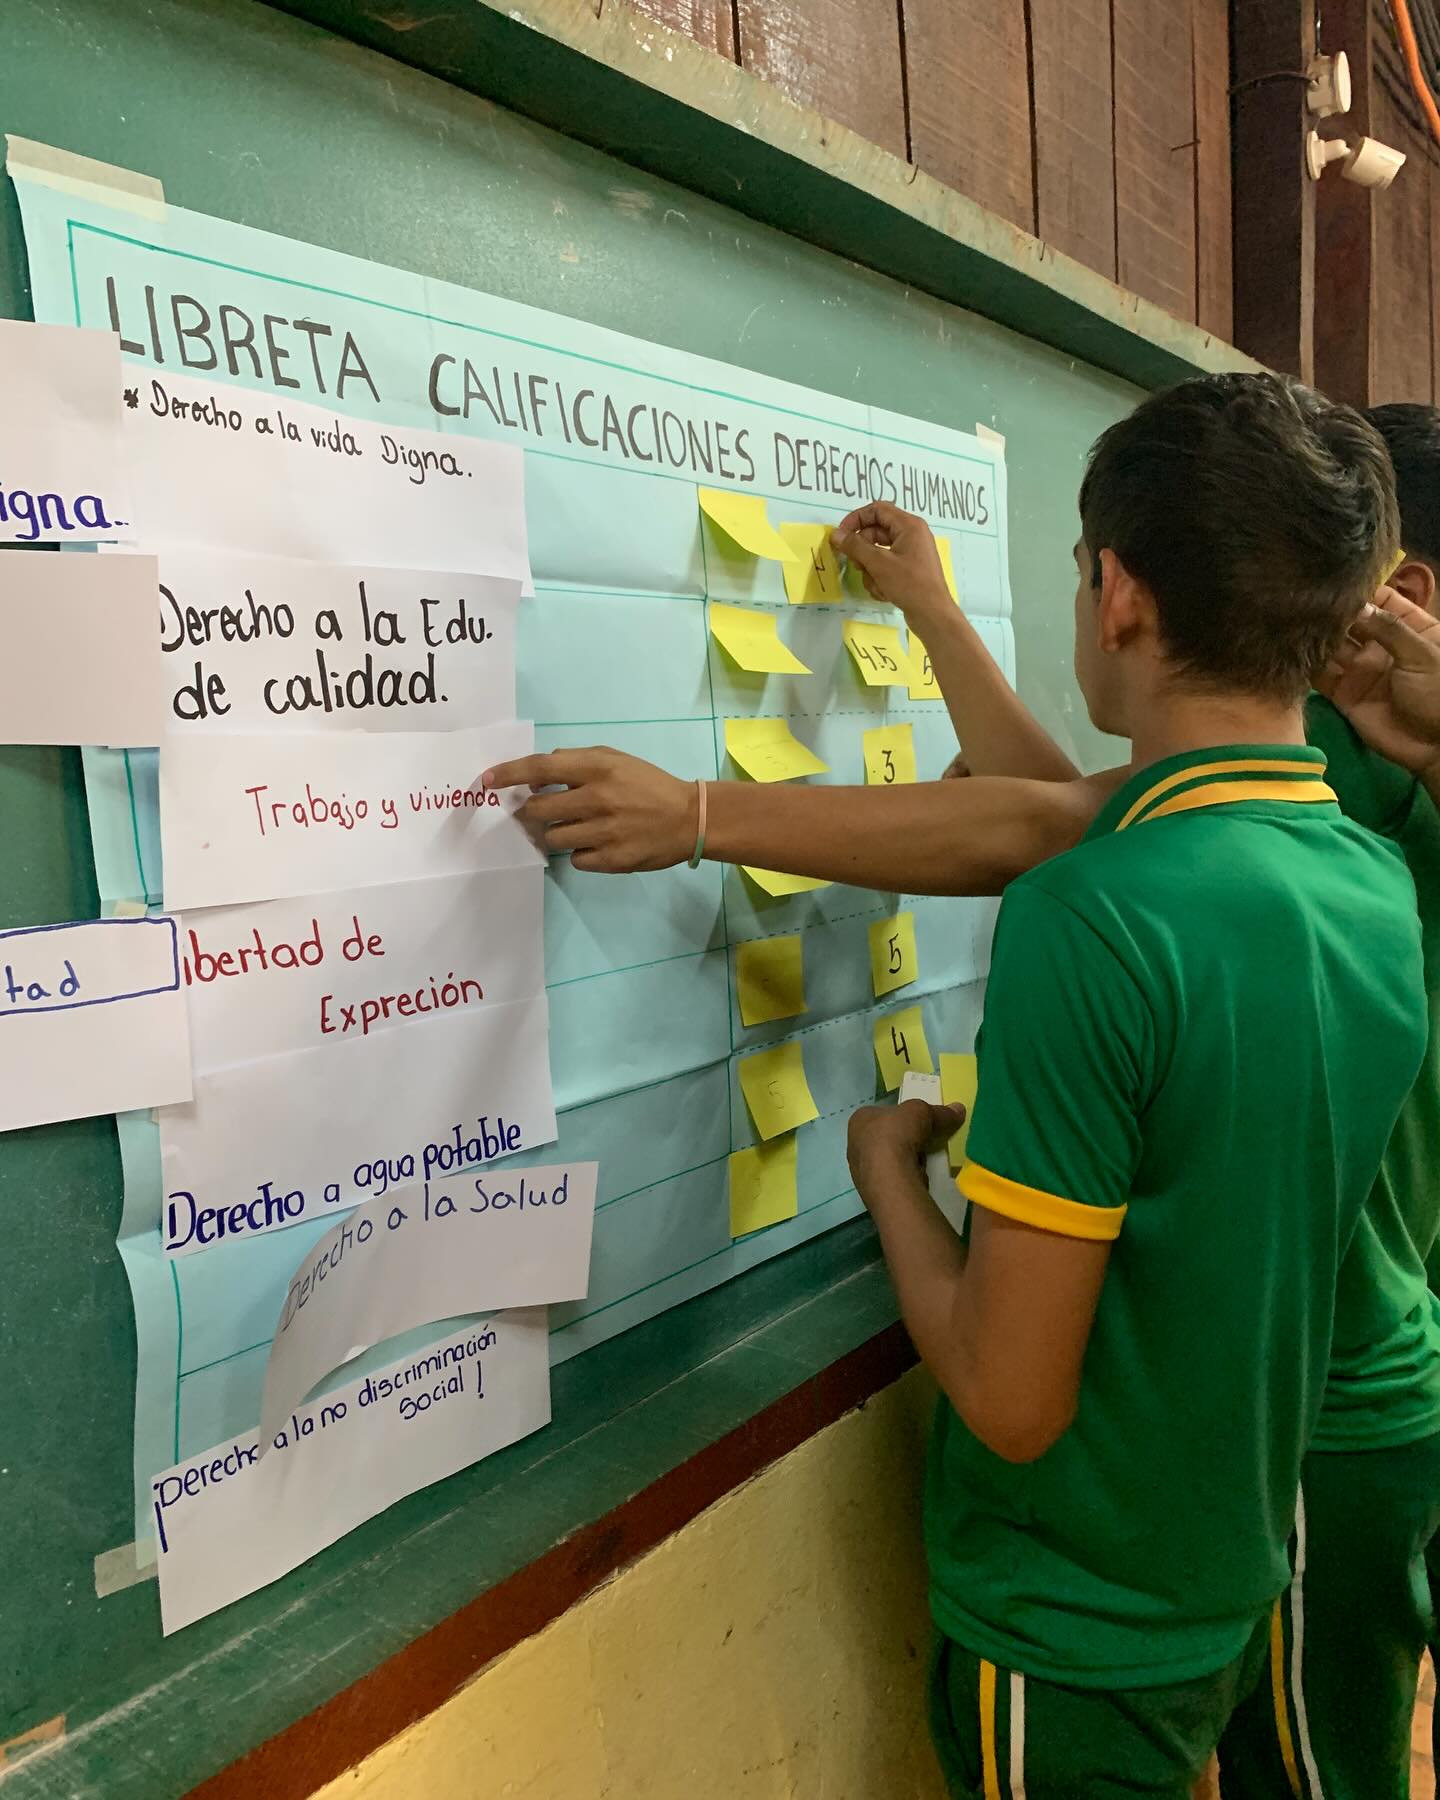 LIBRETA CALIFICACIONES DERECHOS HUMANOS
* Derecho a la vida Digna.
igna..
Derecho a la Edu.
de calidad.
Trabajo y vivienda
ibertad de
Expreción
tad
Derecho a agua potable
Derecho a la Salud
¡Derecho a la no discriminación
social!
4
4.5
5
3
5
4
5